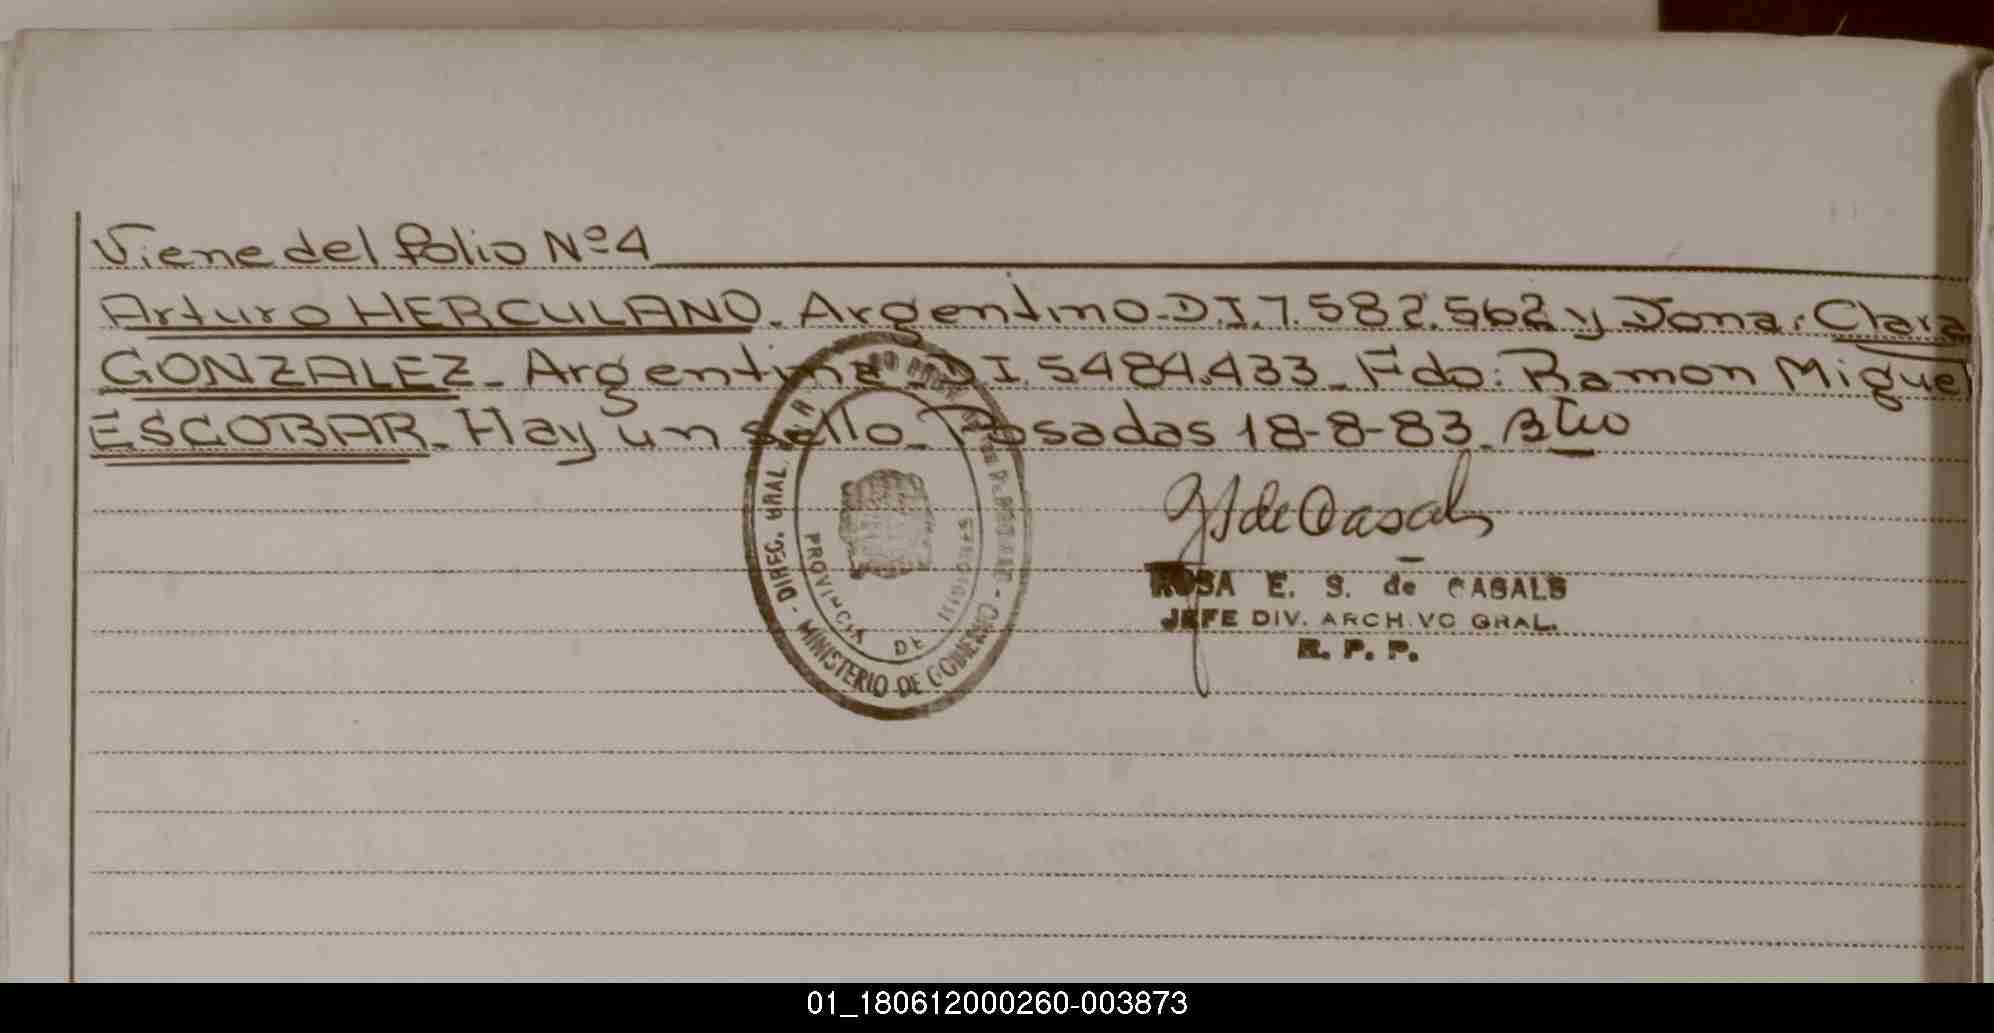 Viene del folio Nº 4
Arturo HERCULANO. Argentino. DI. 7.582.562 y Dona. Clara
GONZALEZ. Argentina DI. 5484.433. Fdo: Ramon Miguel
ESCOBAR. Hay un sello. Posadas 18-8-83.
DIREC. GRAL.
PROVINCIA DE MISIONES
MINISTERIO DE GOBIERNO
de Casals
ROSA E. S. de CASALS
JEFE DIV. ARCHIVO GRAL.
R. P. P.
01_180612000260-003873